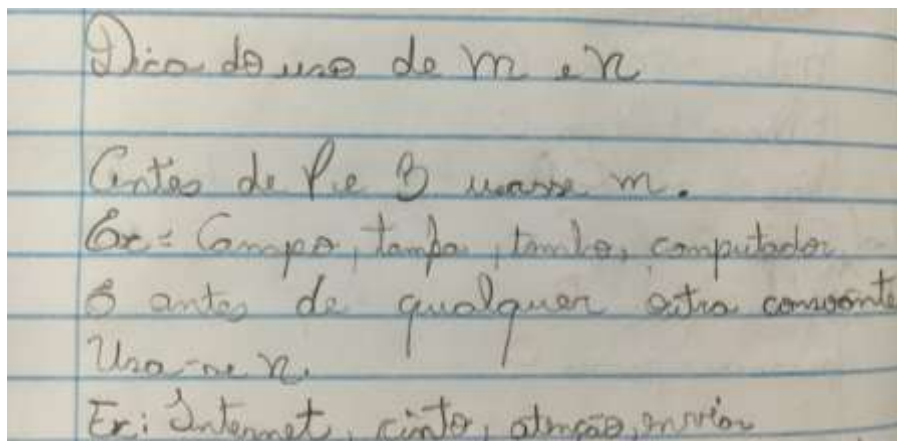 Dica do uso de m e n
Antes de P e B usasse m.
Ex: Campo, tampa, tombo, computador
E antes de qualquer otra consoante
Usa-se n.
Ex: Internet, cinto, atenção, enviar